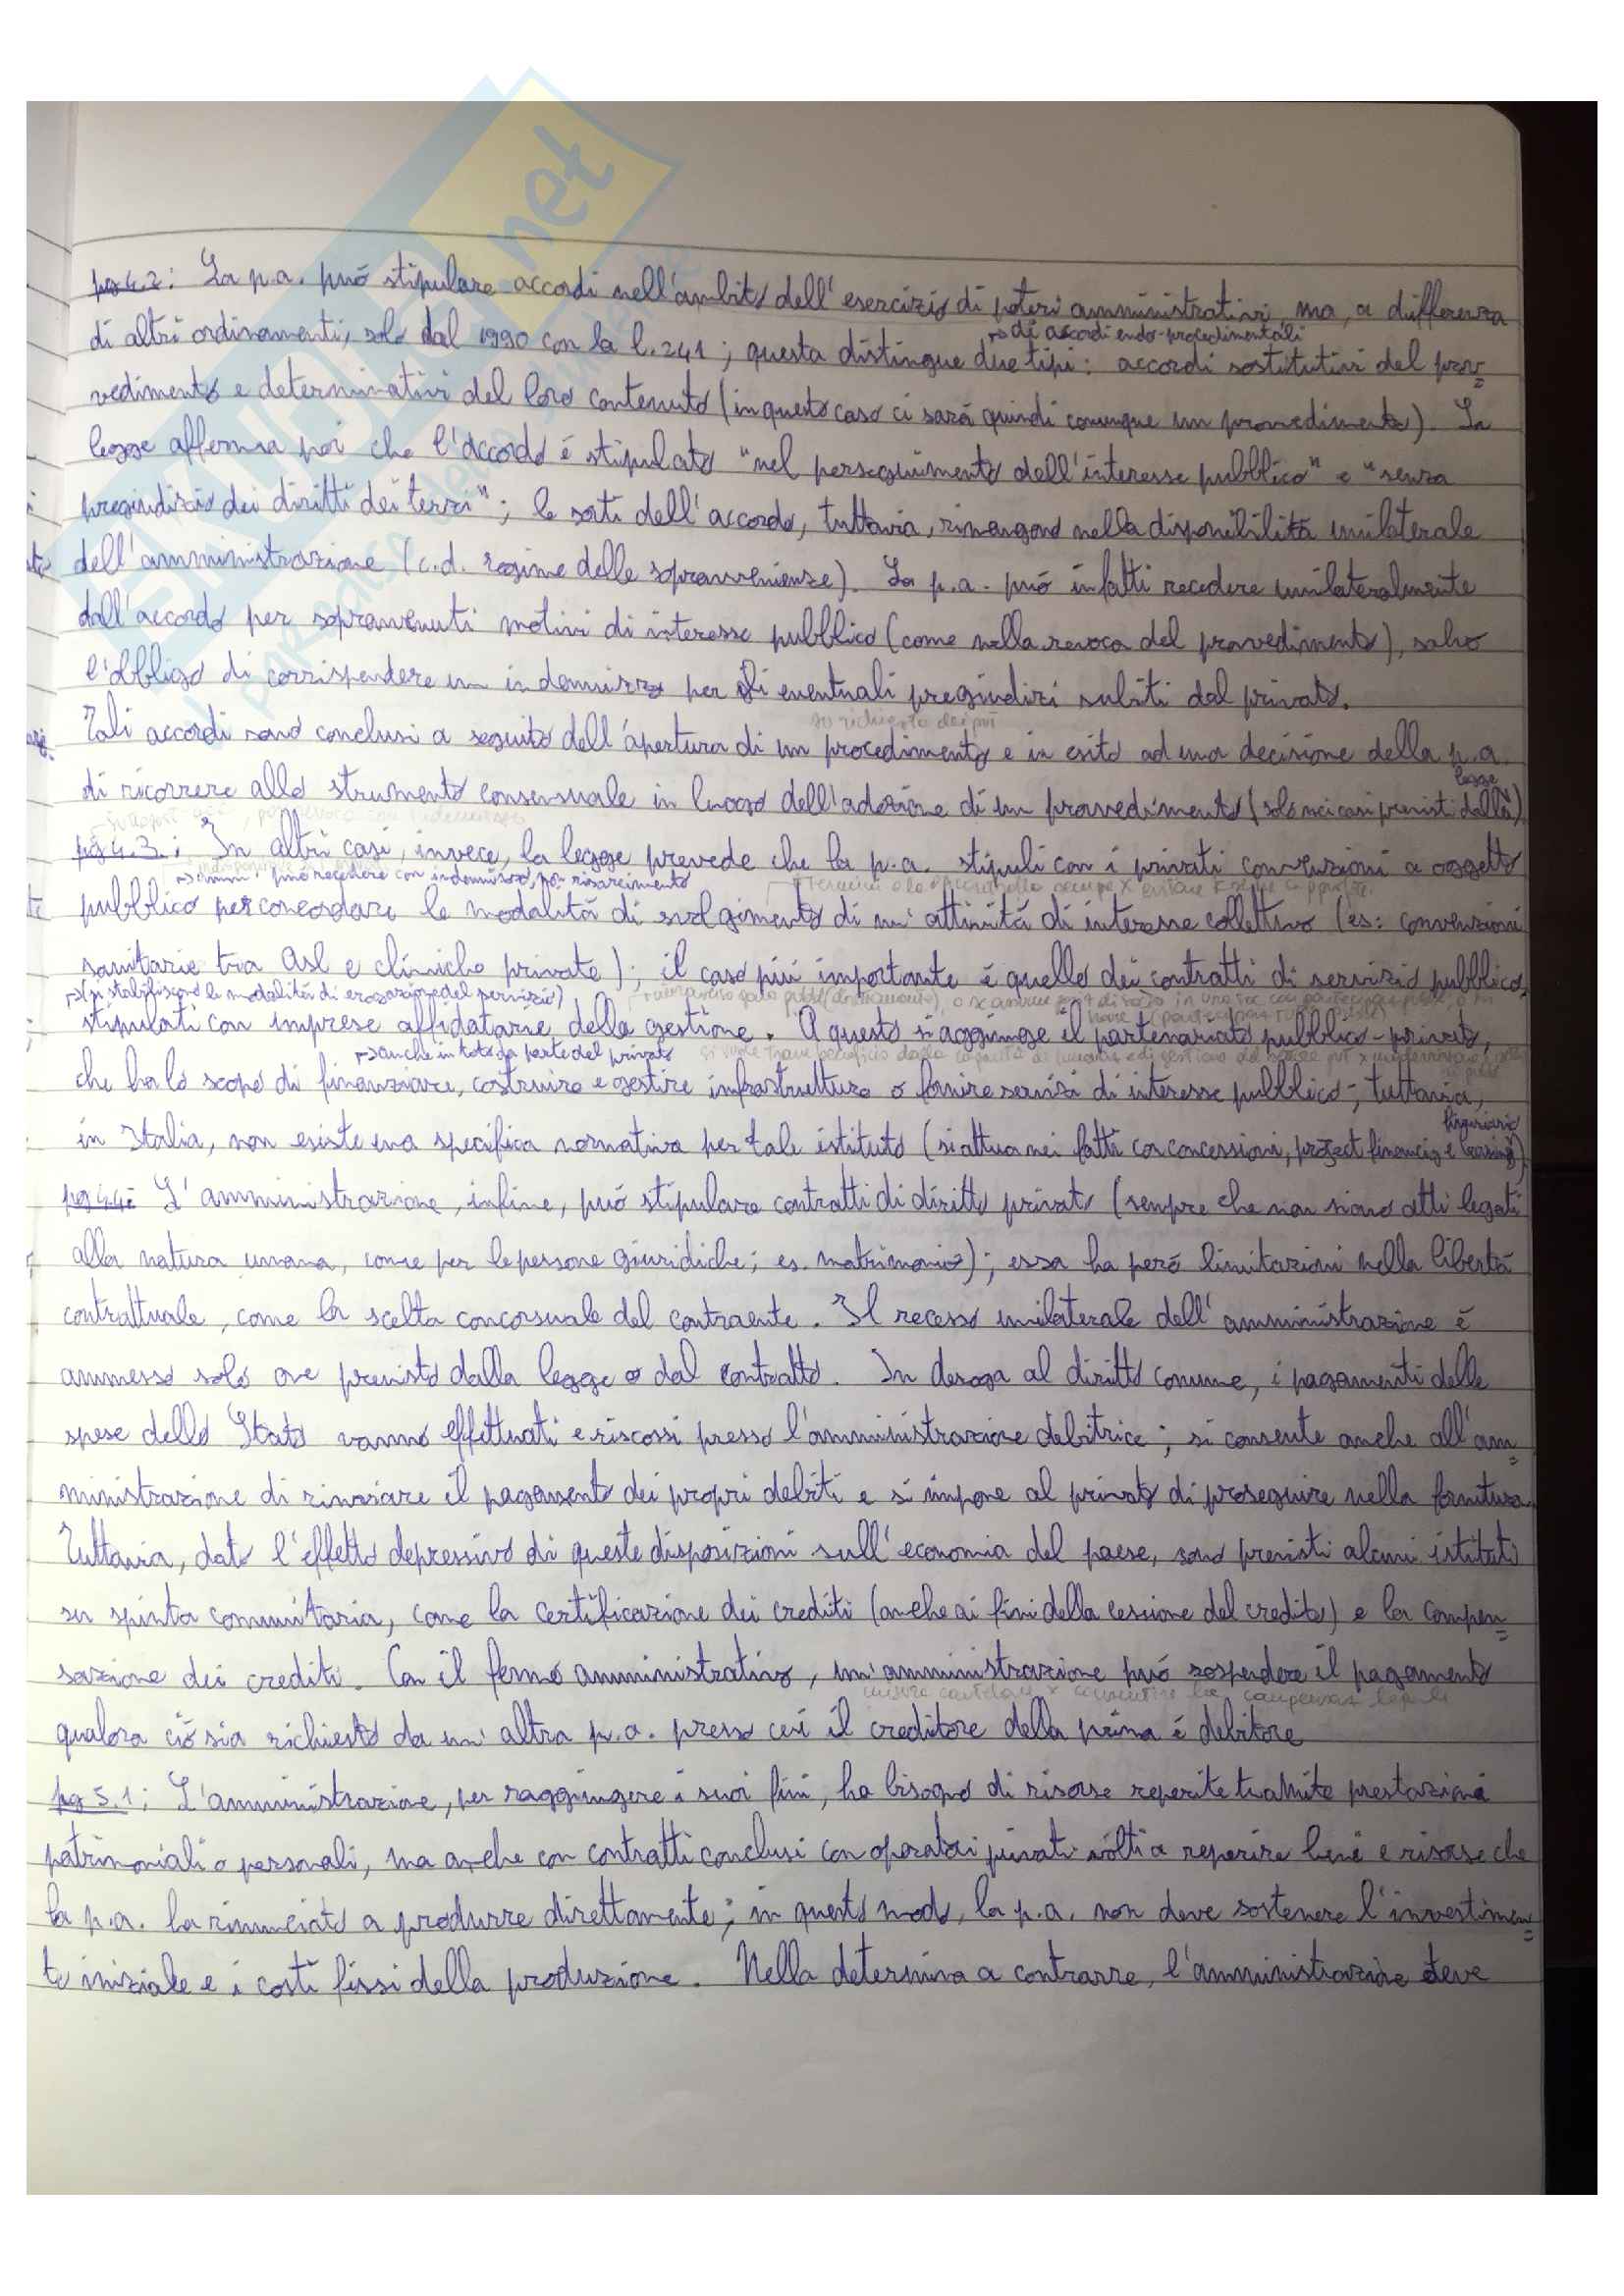 net
pg 4.2: La p.a. può stipulare accordi nell'ambito dell'esercizio di poteri amministrativi, ma, a differenza
di altri ordinamenti, solo dal 1990 con la l. 241; questa distingue due tipi: accordi sostitutivi del prov=
→ di accordi endo-procedimentali
vedimento e determinativi del loro contenuto (in questo caso ci sarà quindi comunque un provvedimento). La
legge afferma poi che l'accordo é stipulato "nel perseguimento dell'interesse pubblico" e "senza
pregiudizio dei diritti dei terzi"; le sorti dell'accordo, tuttavia, rimangono nella disponibilità unilaterale
dell'amministrazione (c.d. regime delle sopravvenienze). La p.a. può infatti recedere unilateralmente
dall'accordo per sopravvenuti motivi di interesse pubblico (come nella revoca del provvedimento), salvo
l'obbligo di corrispondere un indennizzo per gli eventuali pregiudizi subiti dal privato.
su richiesta dei pvt
Tali accordi sono conclusi a seguito dell'apertura di un procedimento e in esito ad una decisione della p.a.
di ricorrere allo strumento consensuale in luogo dell'adozione di un provvedimento (solo nei casi previsti dalla legge)
pg 4.3.: In altri casi, invece, la legge prevede che la p.a. stipuli con i privati convenzioni a oggetto
→ amm. può recedere con indennizzo, non risarcimento
pubblico per concordare le modalità di svolgimento di un'attività di interesse collettivo (es: convenzioni
sanitarie tra Asl e cliniche private); il caso più importante é quello dei contratti di servizio pubblico,
→ (si stabiliscono le modalità di erogazione del servizio)
stipulati con imprese affidatarie della gestione. A questo si aggiunge il partenariato pubblico-privato,
→ anche in toto da parte del privato
che ha lo scopo di finanziare, costruire e gestire infrastrutture o fornire servizi di interesse pubblico; tuttavia,
in Italia, non esiste una specifica normativa per tale istituto (si attua nei fatti con concessioni, project financing e leasing finanziario)
pg 4.4: L'amministrazione, infine, può stipulare contratti di diritto privato (sempre che non siano atti legati
alla natura umana, come per le persone giuridiche; es. matrimonio); essa ha però limitazioni nella libertà
contrattuale, come la scelta concorsuale del contraente. Il recesso unilaterale dell'amministrazione é
ammesso solo ove previsto dalla legge o dal contratto. In deroga al diritto comune, i pagamenti delle
spese dello Stato vanno effettuati e riscossi presso l'amministrazione debitrice; si consente anche all'am=
ministrazione di rinviare il pagamento dei propri debiti e si impone al privato di proseguire nella fornitura.
Tuttavia, dato l'effetto depressivo di queste disposizioni sull'economia del paese, sono previsti alcuni istituti
su spinta comunitaria, come la certificazione dei crediti (anche ai fini della cessione del credito) e la compen=
sazione dei crediti. Con il fermo amministrativo, un'amministrazione può sospendere il pagamento
misura cautelare x consentire la compensaz. legale
qualora ciò sia richiesto da un'altra p.a. presso cui il creditore della prima é debitore
pg 5.1: L'amministrazione, per raggiungere i suoi fini, ha bisogno di risorse reperite tramite prestazioni
patrimoniali o personali, ma anche con contratti conclusi con operatori privati volti a reperire beni e risorse che
la p.a. ha rinunciato a produrre direttamente; in questo modo, la p.a. non deve sostenere l'investimen=
to iniziale e i costi fissi della produzione. Nella determina a contrarre, l'amministrazione deve